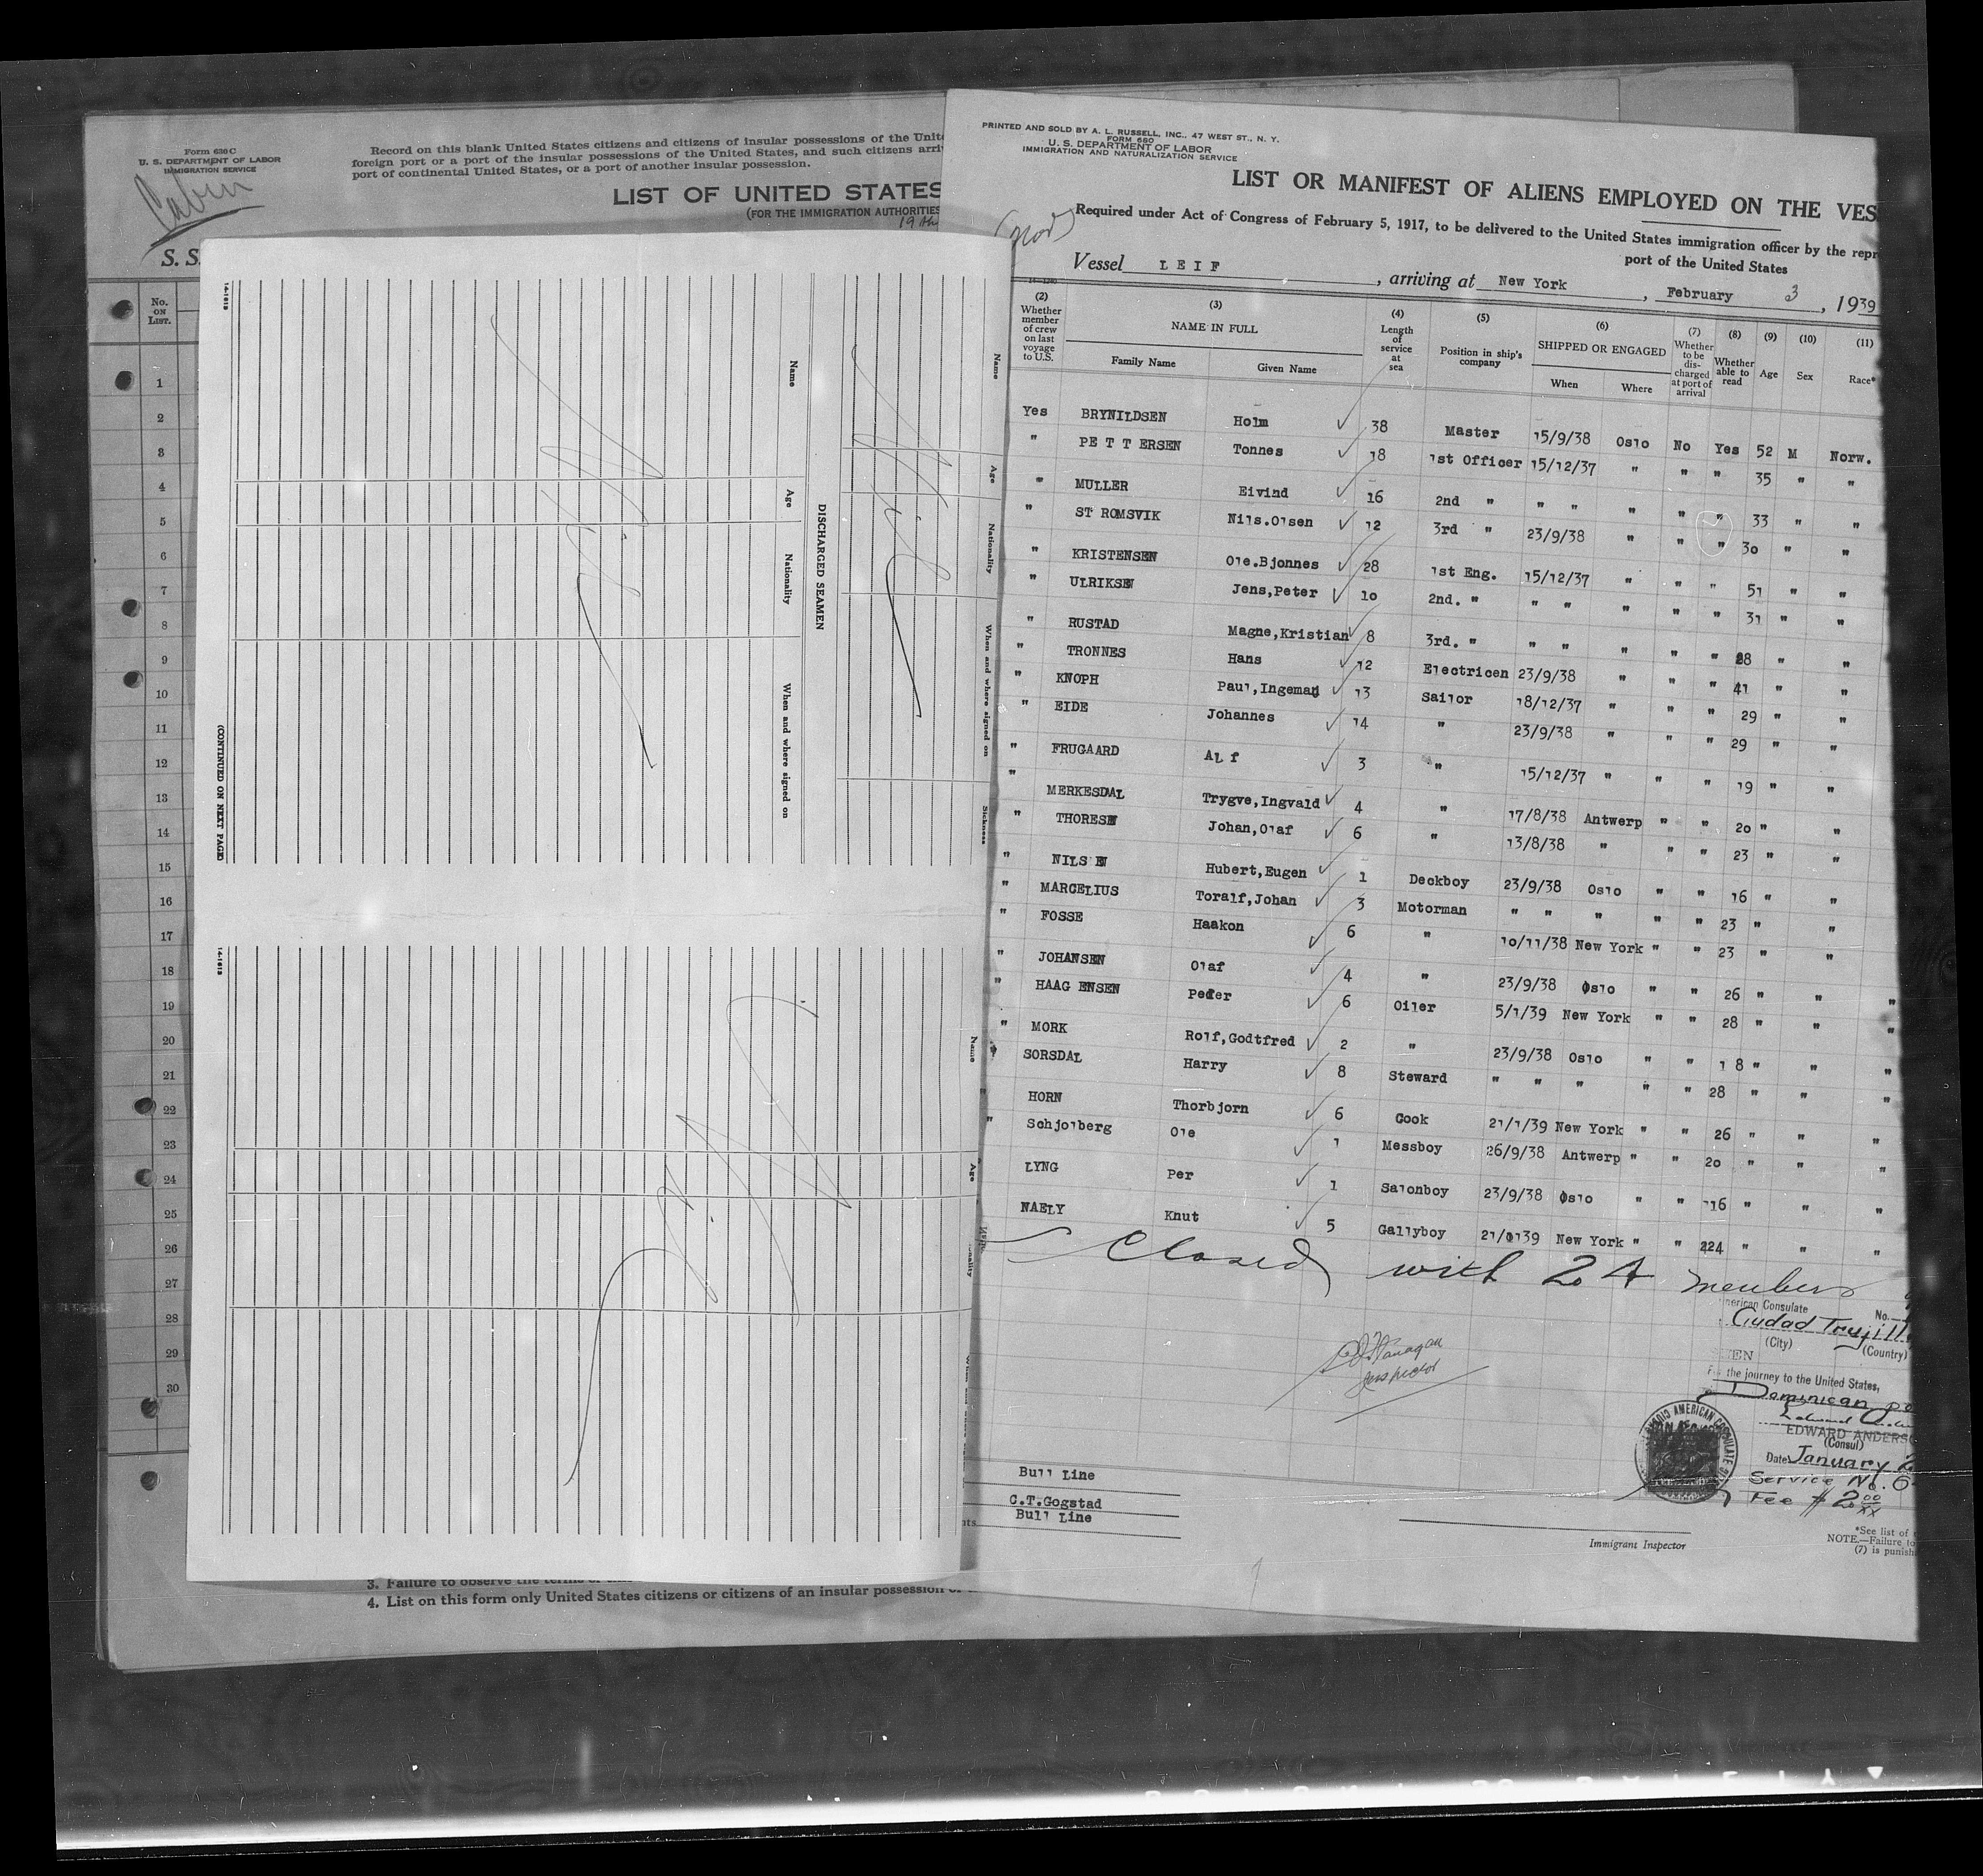 Form 630 C
U. S. DEPARTMENT OF LABOR
IMMIGRATION SERVICE
Cabin
Record on this blank United States citizens and citizens of insular possessions of the
foreign port or a port of the insular possessions of the United States, and such citizens
port of continental United States, or a port of another insular possession.
LIST OF UNITED STATES
(FOR THE IMMIGRATION AUTHORITIES
S. S.
No.
ON
LIST.
1
2
3
4
5
6
7
8
9
10
11
12
13
14
15
16
17
18
19
20
21
22
23
24
25
26
27
28
29
30
3. Failure to observe the terms
4. List on this form only United States citizens or citizens of an insular possession
Name
Age
Nationality
When and where signed on
Sickness
DISCHARGED SEAMEN
Name
Age
Nationality
When and where signed on
(CONTINUED ON NEXT PAGE)
14-1618
Name
Age
14-1618
PRINTED AND SOLD BY A. L. RUSSELL, INC., 47 WEST ST., N. Y.
FORM 660
U. S. DEPARTMENT OF LABOR
IMMIGRATION AND NATURALIZATION SERVICE
LIST OR MANIFEST OF ALIENS EMPLOYED ON THE VES
Required under Act of Congress of February 5, 1917, to be delivered to the United States immigration officer by the repr
port of the United States
(Nor)
Vessel LEIF , arriving at New York , February 3 , 1939
(2) Whether member of crew on last voyage to U.S.
(3) NAME IN FULL
Family Name Given Name
(4) Length of service at sea
(5) Position in ship's company
(6) SHIPPED OR ENGAGED
When Where
(7) Whether to be discharged at port of arrival
(8) Whether able to read
(9) Age
(10) Sex
(11) Race*
Yes BRYNILDSEN Holm ✓ 38 Master 15/9/38 Oslo No Yes 52 M Norw.
" PETTERSEN Tonnes ✓ 18 1st Officer 15/12/37 " " " 35 " "
" MULLER Eivind ✓ 16 2nd " " " " " " 33 " "
" STROMSVIK Nils.Olsen ✓ 12 3rd " 23/9/38 " " " 30 " "
" KRISTENSEN Ole.Bjonnes ✓ 28 1st Eng. 15/12/37 " " " 51 " "
" ULRIKSEN Jens,Peter ✓ 10 2nd. " " " " " " 31 " "
" RUSTAD Magne,Kristian ✓ 8 3rd. " " " " " " 28 " "
" TRONNES Hans ✓ 12 Electricen 23/9/38 " " " 41 " "
" KNOPH Paul,Ingeman ✓ 13 Sailor 18/12/37 " " " 29 " "
" EIDE Johannes ✓ 14 " 23/9/38 " " " 29 " "
" FRUGAARD Alf ✓ 3 " 15/12/37 " " " 19 " "
" MERKESDAL Trygve,Ingvald ✓ 4 " 17/8/38 Antwerp " " 20 " "
" THORESEN Johan,Olaf ✓ 6 " 13/8/38 " " " 23 " "
" NILSEN Hubert,Eugen ✓ 1 Deckboy 23/9/38 Oslo " " 16 " "
" MARCELIUS Toralf,Johan ✓ 3 Motorman " " " " " 23 " "
" FOSSE Haakon ✓ 6 " 10/11/38 New York " " 23 " "
" JOHANSEN Olaf ✓ 4 " 23/9/38 Oslo " " 26 " "
" HAAGENSEN Peder ✓ 6 Oiler 5/1/39 New York " " 28 " "
" MORK Rolf,Godtfred ✓ 2 " 23/9/38 Oslo " " 18 " "
" SORSDAL Harry ✓ 8 Steward " " " " " 28 " "
" HORN Thorbjorn ✓ 6 Cook 21/1/39 New York " " 26 " "
" Schjolberg Ole ✓ 1 Messboy 26/9/38 Antwerp " " 20 " "
LYNG Per ✓ 1 Salonboy 23/9/38 Oslo " " 16 " "
NAELY Knut ✓ 5 Gallyboy 21/1/39 New York " " 24 " "
Closed with 24 members
American Consulate No.
Ciudad Trujillo
(City) (Country)
the journey to the United States,
Dominican
EDWARD ANDERS
(Consul)
Date January 2
Service No. 6
Fee $2.00
Inspector
Bull Line
C.T.Gogstad
Bull Line
Immigrant Inspector
*See list of
NOTE.—Failure to
(7) is punish